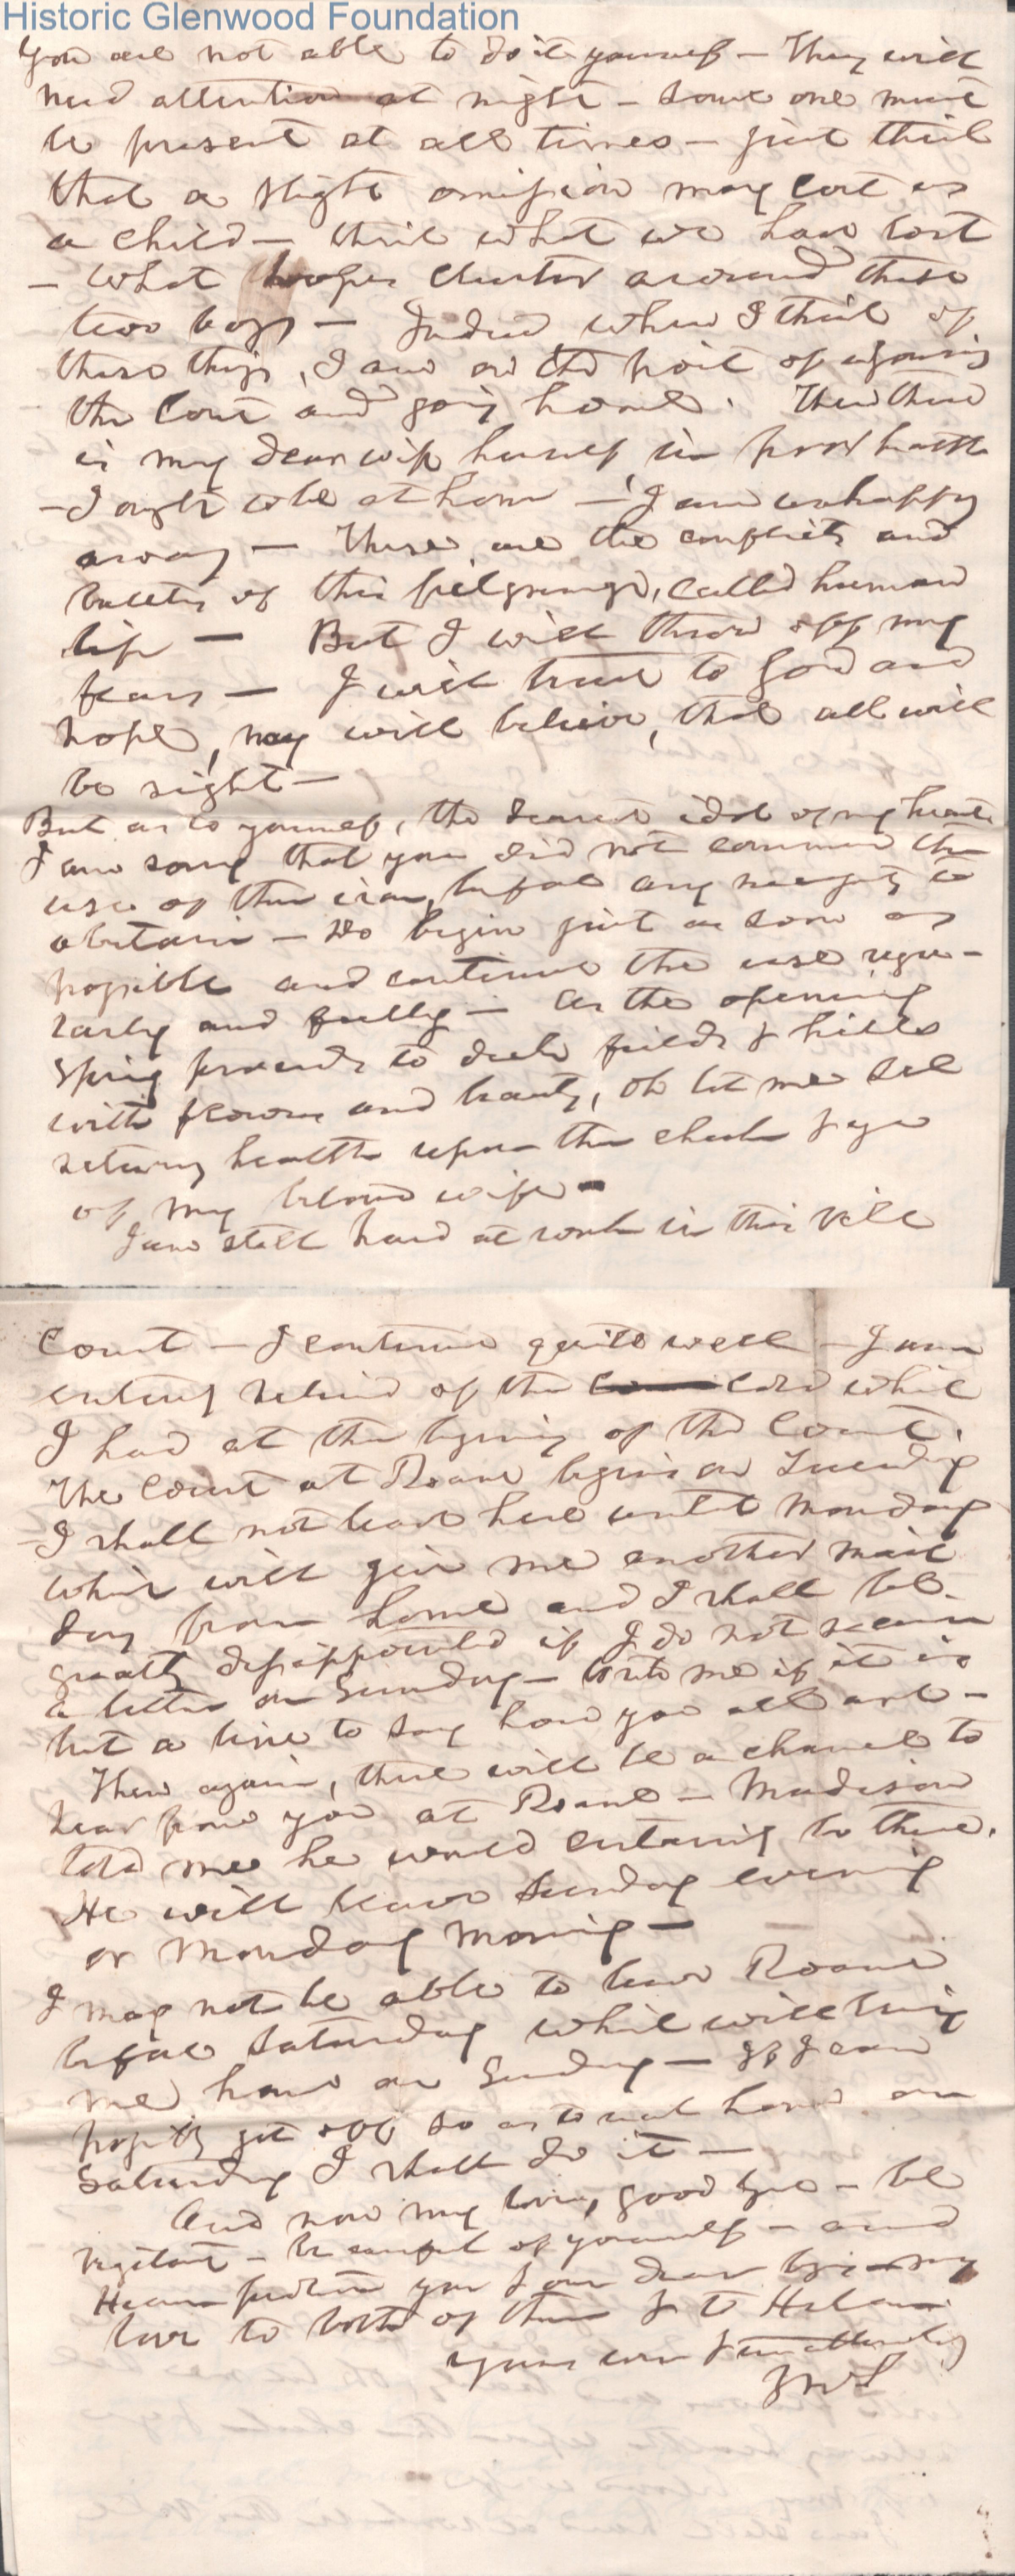 Historic Glenwood Foundation
You are not able to do it yourself — They will
need attention at night — Some one must
be present at all times — just think
that a slight omission may cost us
a child — think what we have lost
— what hopes cluster around these
two boys — Indeed when I think of
these things, I am on the point of
the Court and going home. Then there
is my dear wife herself in poor health
— I ought to be at home — I am unhappy
away — These are the conflicts and
battles of this pilgrimage, called human
life — But I will throw off my
fears — I will trust to God and
hope, nay will believe, that all will
be right —
But as to yourself, the dearest idol of my heart
I am sorry that you did not commence the
use of the iron, before any necessity to
abstain — Do begin just as soon as
possible and continue the use regu-
larly and fully — As the opening
spring proceeds to deck fields & hills
with flowers and beauty, oh let me see
returning health upon the cheek & eye
of my beloved wife —
I am still hard at work in this vile
Court — I continue quite well — I am
entirely relieved of the cold which
I had at the beginning of the Court.
The Court at Roane begins on Tuesday
— I shall not leave here until Monday
which will give me another mail
day from home and I shall be
greatly disappointed if I do not receive
a letter on Sunday — Write me if it is
but a line to say how you all are —
Then again, there will be a chance to
hear from you at Roane — Madison
told me he would certainly be there.
He will leave Sunday evening
or Monday morning —
I may not be able to leave Roane
before Saturday which will bring
me home on Sunday — If I can
possibly get off so as to reach home on
Saturday I shall do it —
And now my love, good bye — be
vigilant — be careful of yourself — and
Heaven protect you & our dear boys — my
love to both of them & to Helen
yours ever & unalterably